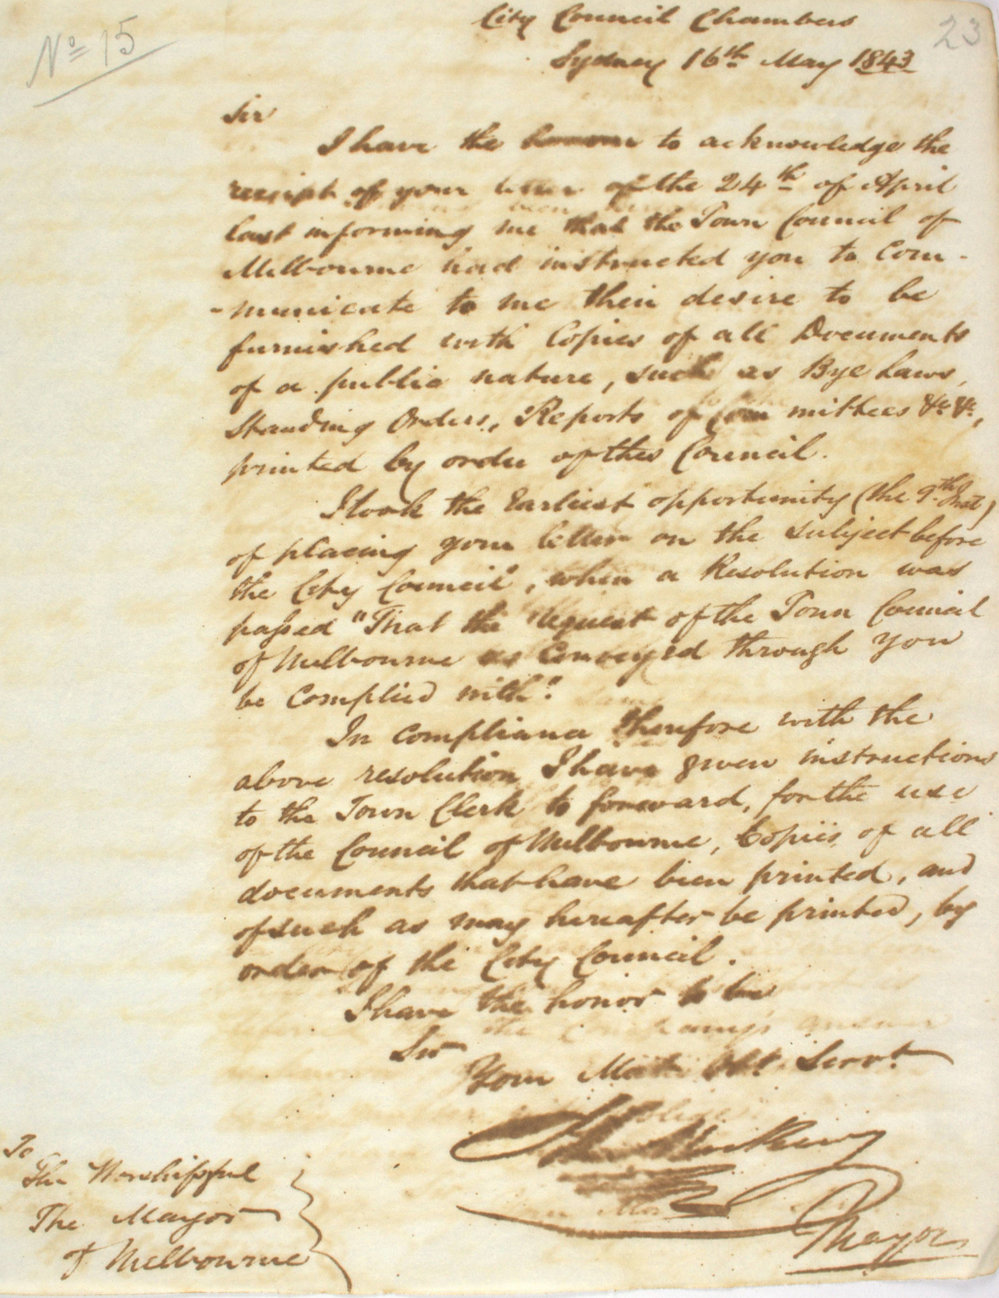 No 15
23
City Council Chambers
Sydney 16th May 1843
Sir
I have the honour to acknowledge the
receipt of your letter of the 24th of April
last informing me that the Town Council of
Melbourne had instructed you to Com-
-municate to me their desire to be
furnished with Copies of all Documents
of a public nature, such as Bye Laws,
Standing Orders, Reports of Committees &c &c,
printed by order of this Council.
I took the Earliest opportunity (the 9th Inst)
of placing your letter on the subject before
the City Council, when a Resolution was
passed "That the request of the Town Council
of Melbourne as Conveyed through You
be Complied with".
In Compliance therefore with the
above resolution I have given instructions
to the Town Clerk to forward, for the use
of the Council of Melbourne, Copies of all
documents that have been printed, and
of such as may hereafter be printed, by
order of the City Council.
I have the honor to be
Sir
Your Most Obt. Servt.
Mayor
To
The Worshipful
The Mayor
of Melbourne